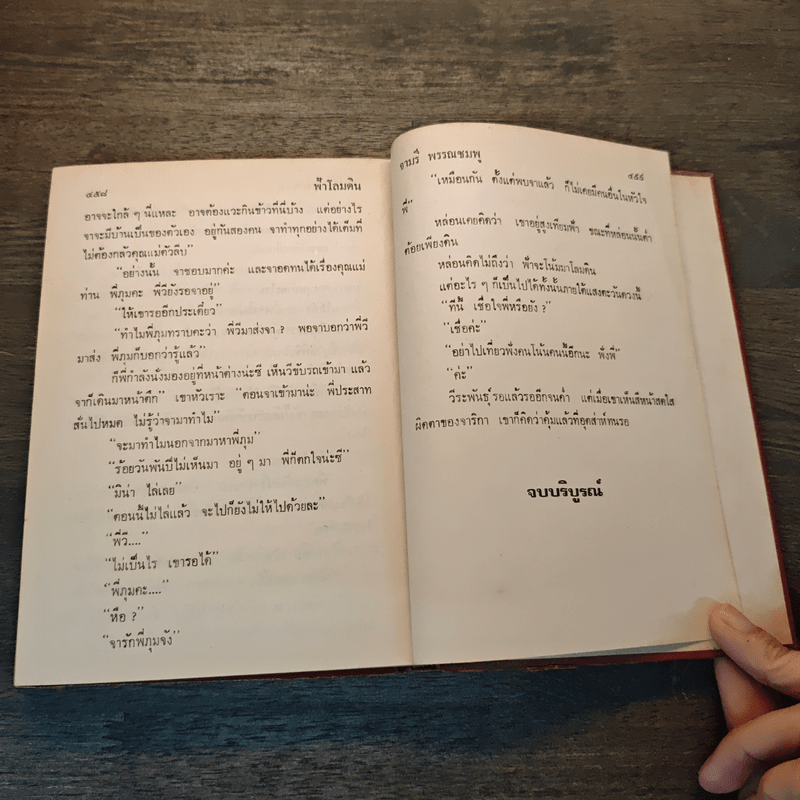 ๔๕๘ ฟ้าโลมดิน
อาจจะใกล้ ๆ นี่แหละ อาจต้องแวะกินข้าวที่นี่บ้าง แต่อย่างไร
จาจะมีบ้านเป็นของตัวเอง อยู่กันสองคน จาทำทุกอย่างได้เต็มที่
ไม่ต้องกลัวคุณแม่ตัวสืบ”
“อย่างนั้น จาชอบมากค่ะ และจาอดทนได้เรื่องคุณแม่
ท่าน พี่ภูมคะ พี่วียังรอจาอยู่”
“ให้เขารออีกประเดี๋ยว”
“ทำไมพี่ภูมทราบคะว่า พี่วีมาส่งจา ? พอจาบอกว่าพี่วี
มาส่ง พี่ภูมก็บอกว่ารู้แล้ว”
ก็พี่กำลังนั่งมองอยู่ที่หน้าต่างน่ะซี เห็นวีขับรถเข้ามา แล้ว
จาก็เดินมาหน้าตึก” เขาหัวเราะ “ตอนจาเข้ามาน่ะ พี่ประสาท
สั่นไปหมด ไม่รู้ว่าจามาทำไม”
“จะมาทำไมนอกจากมาหาพี่ภูม”
“ร้อยวันพันปีไม่เห็นมา อยู่ ๆ มา พี่ก็ตกใจน่ะซี”
“มิน่า ไล่เลย”
“ตอนนี้ไม่ไล่แล้ว จะไปก็ยังไม่ให้ไปด้วยละ”
“พี่วี....”
“ไม่เป็นไร เขารอได้”
“พี่ภูมคะ....”
“หือ ?”
“จารักพี่ภูมจัง”
จามรี พรรณชมพู ๔๕๙
“เหมือนกัน ตั้งแต่พบจาแล้ว ก็ไม่เคยมีคนอื่นในหัวใจ
พี่”
หล่อนเคยคิดว่า เขาอยู่สูงเทียมฟ้า ขณะที่หล่อนนั้นต่ำ
ต้อยเพียงดิน
หล่อนคิดไม่ถึงว่า ฟ้าจะโน้มมาโลมดิน
แต่อะไร ๆ ก็เป็นไปได้ทั้งนั้นภายใต้แสงตะวันดวงนี้
“ทีนี้ เชื่อใจพี่หรือยัง ?”
“เชื่อค่ะ”
“อย่าไปเที่ยวฟังคนโน้นคนนี้อีกนะ ฟังพี่”
“ค่ะ”
วีระพันธุ์ รอแล้วรออีกจนค่ำ แต่เมื่อเขาเห็นสีหน้าสดใส
ผิดตาของจาริกา เขาก็คิดว่าคุ้มแล้วที่อุตส่าห์ทนรอ
จบบริบูรณ์